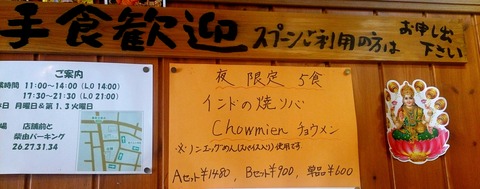 手食歓迎 スプーンご利用の方は お申し出下さい
ご案内
業時間 11:00～14:00 (LO 14:00)
17:30～21:30 (LO 21:00)
日 月曜日&第1.3火曜日
場 店舗前と
柴由パーキング
26.27.31.34
夜 限定 5食
インドの焼ソバ
Chowmien チョウメン
※ノンエッグめん(スパイス入り)使用です
Aセット¥1480, Bセット¥900, 単品¥600